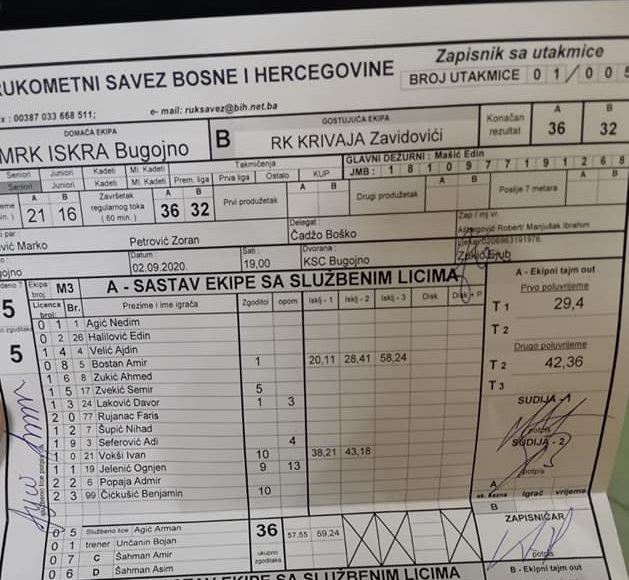 RUKOMETNI SAVEZ BOSNE I HERCEGOVINE
Zapisnik sa utakmice
BROJ UTAKMICE 0 1 / 0 0 5
x : 00387 033 668 511; e- mail: ruksavez@bih.net.ba
DOMAĆA EKIPA
MRK ISKRA Bugojno
B
GOSTUJUĆA EKIPA
RK KRIVAJA Zavidovići
Konačan rezultat
A B
36 32
Seniori Juniori Kadeti Ml. Kadeti Takmičenja
Seniorii Juniorii Kadeti Ml. Kadeti Prem. liga Prva liga Ostalo KUP
GLAVNI DEŽURNI : Mašić Edin
JMB : 1 8 1 0 9 7 7 1 9 1 2 6 8
A B
21 16
Završetak regularnog toka ( 60 min. )
A B
36 32
Prvi produžetak
A B
Drugi produžetak
A B
Poslije 7 metara
A B
ović Marko
Petrović Zoran
Delegat :
Čadžo Boško
Zap i mj vr.
Manjušak Ibrahim
gojno
Datum :
02.09.2020.
Sati :
19,00
Dvorana :
KSC Bugojno
Ekipa broj: M3
A - SASTAV EKIPE SA SLUŽBENIM LICIMA
A - Ekipni tajm out
Licenca broj: Br. Prezime i ime igrača Zgoditci opom Isklj - 1 Isklj - 2 Isklj - 3 Disk Disk + P
0 1 1 Agić Nedim
0 2 26 Halilović Edin
1 4 4 Velić Ajdin
0 8 5 Bostan Amir 1 20,11 28,41 58,24
1 6 8 Zukić Ahmed
1 5 17 Zvekić Semir 5
1 3 24 Laković Davor 1 3
2 0 77 Rujanac Faris
1 2 7 Šupić Nihad
1 9 3 Seferović Adi 4
1 0 21 Vokši Ivan 10 38,21 43,18
1 1 19 Jelenić Ognjen 9 13
2 2 6 Popaja Admir
2 3 99 Čičkušić Benjamin 10
5
5
Prvo poluvrijeme
T 1 29,4
T 2
Drugo poluvrijeme
T 2 42,36
T 3
SUDIJA - 1
potpis
SUDIJA - 2
potpis
A
igrač vrijeme
B
ZAPISNIČAR
potpis
0 5 Službeno lice Agić Arman 36 57,55 59,24
0 1 trener Unčanin Bojan
0 7 C Šahman Amir
0 6 D Šahman Asim
ukupno zgoditaka
SASTAV EKIPE SA SLUŽBENIM LICIMA
B - Ekipni tajm out